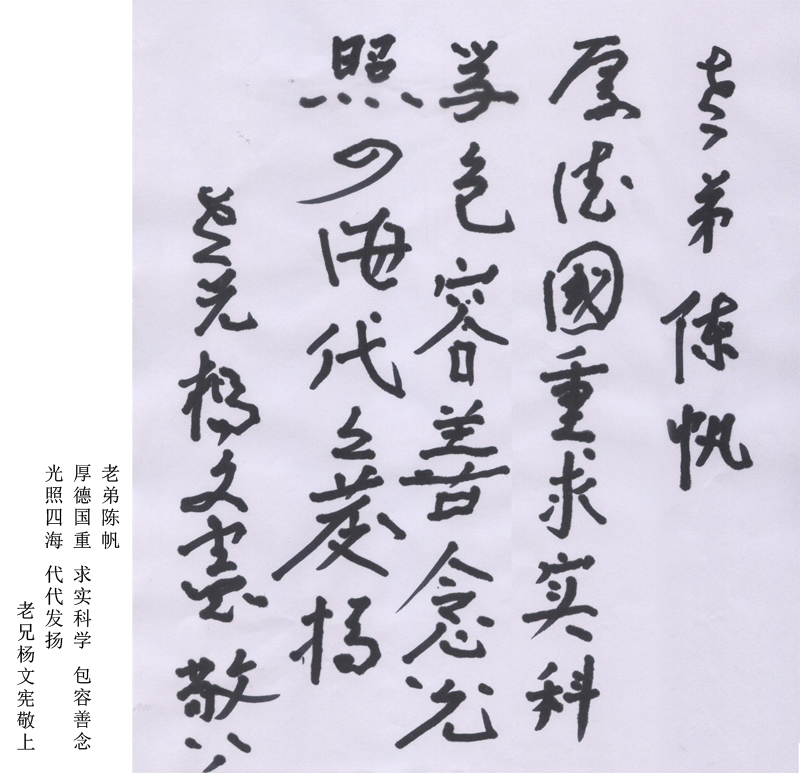 老弟陈帆
厚德國重求实科
学包容善念光
照四海代々發扬
老兄杨文憲敬上
老弟陈帆
厚德国重 求实科学 包容善念
光照四海 代代发扬
老兄杨文宪敬上